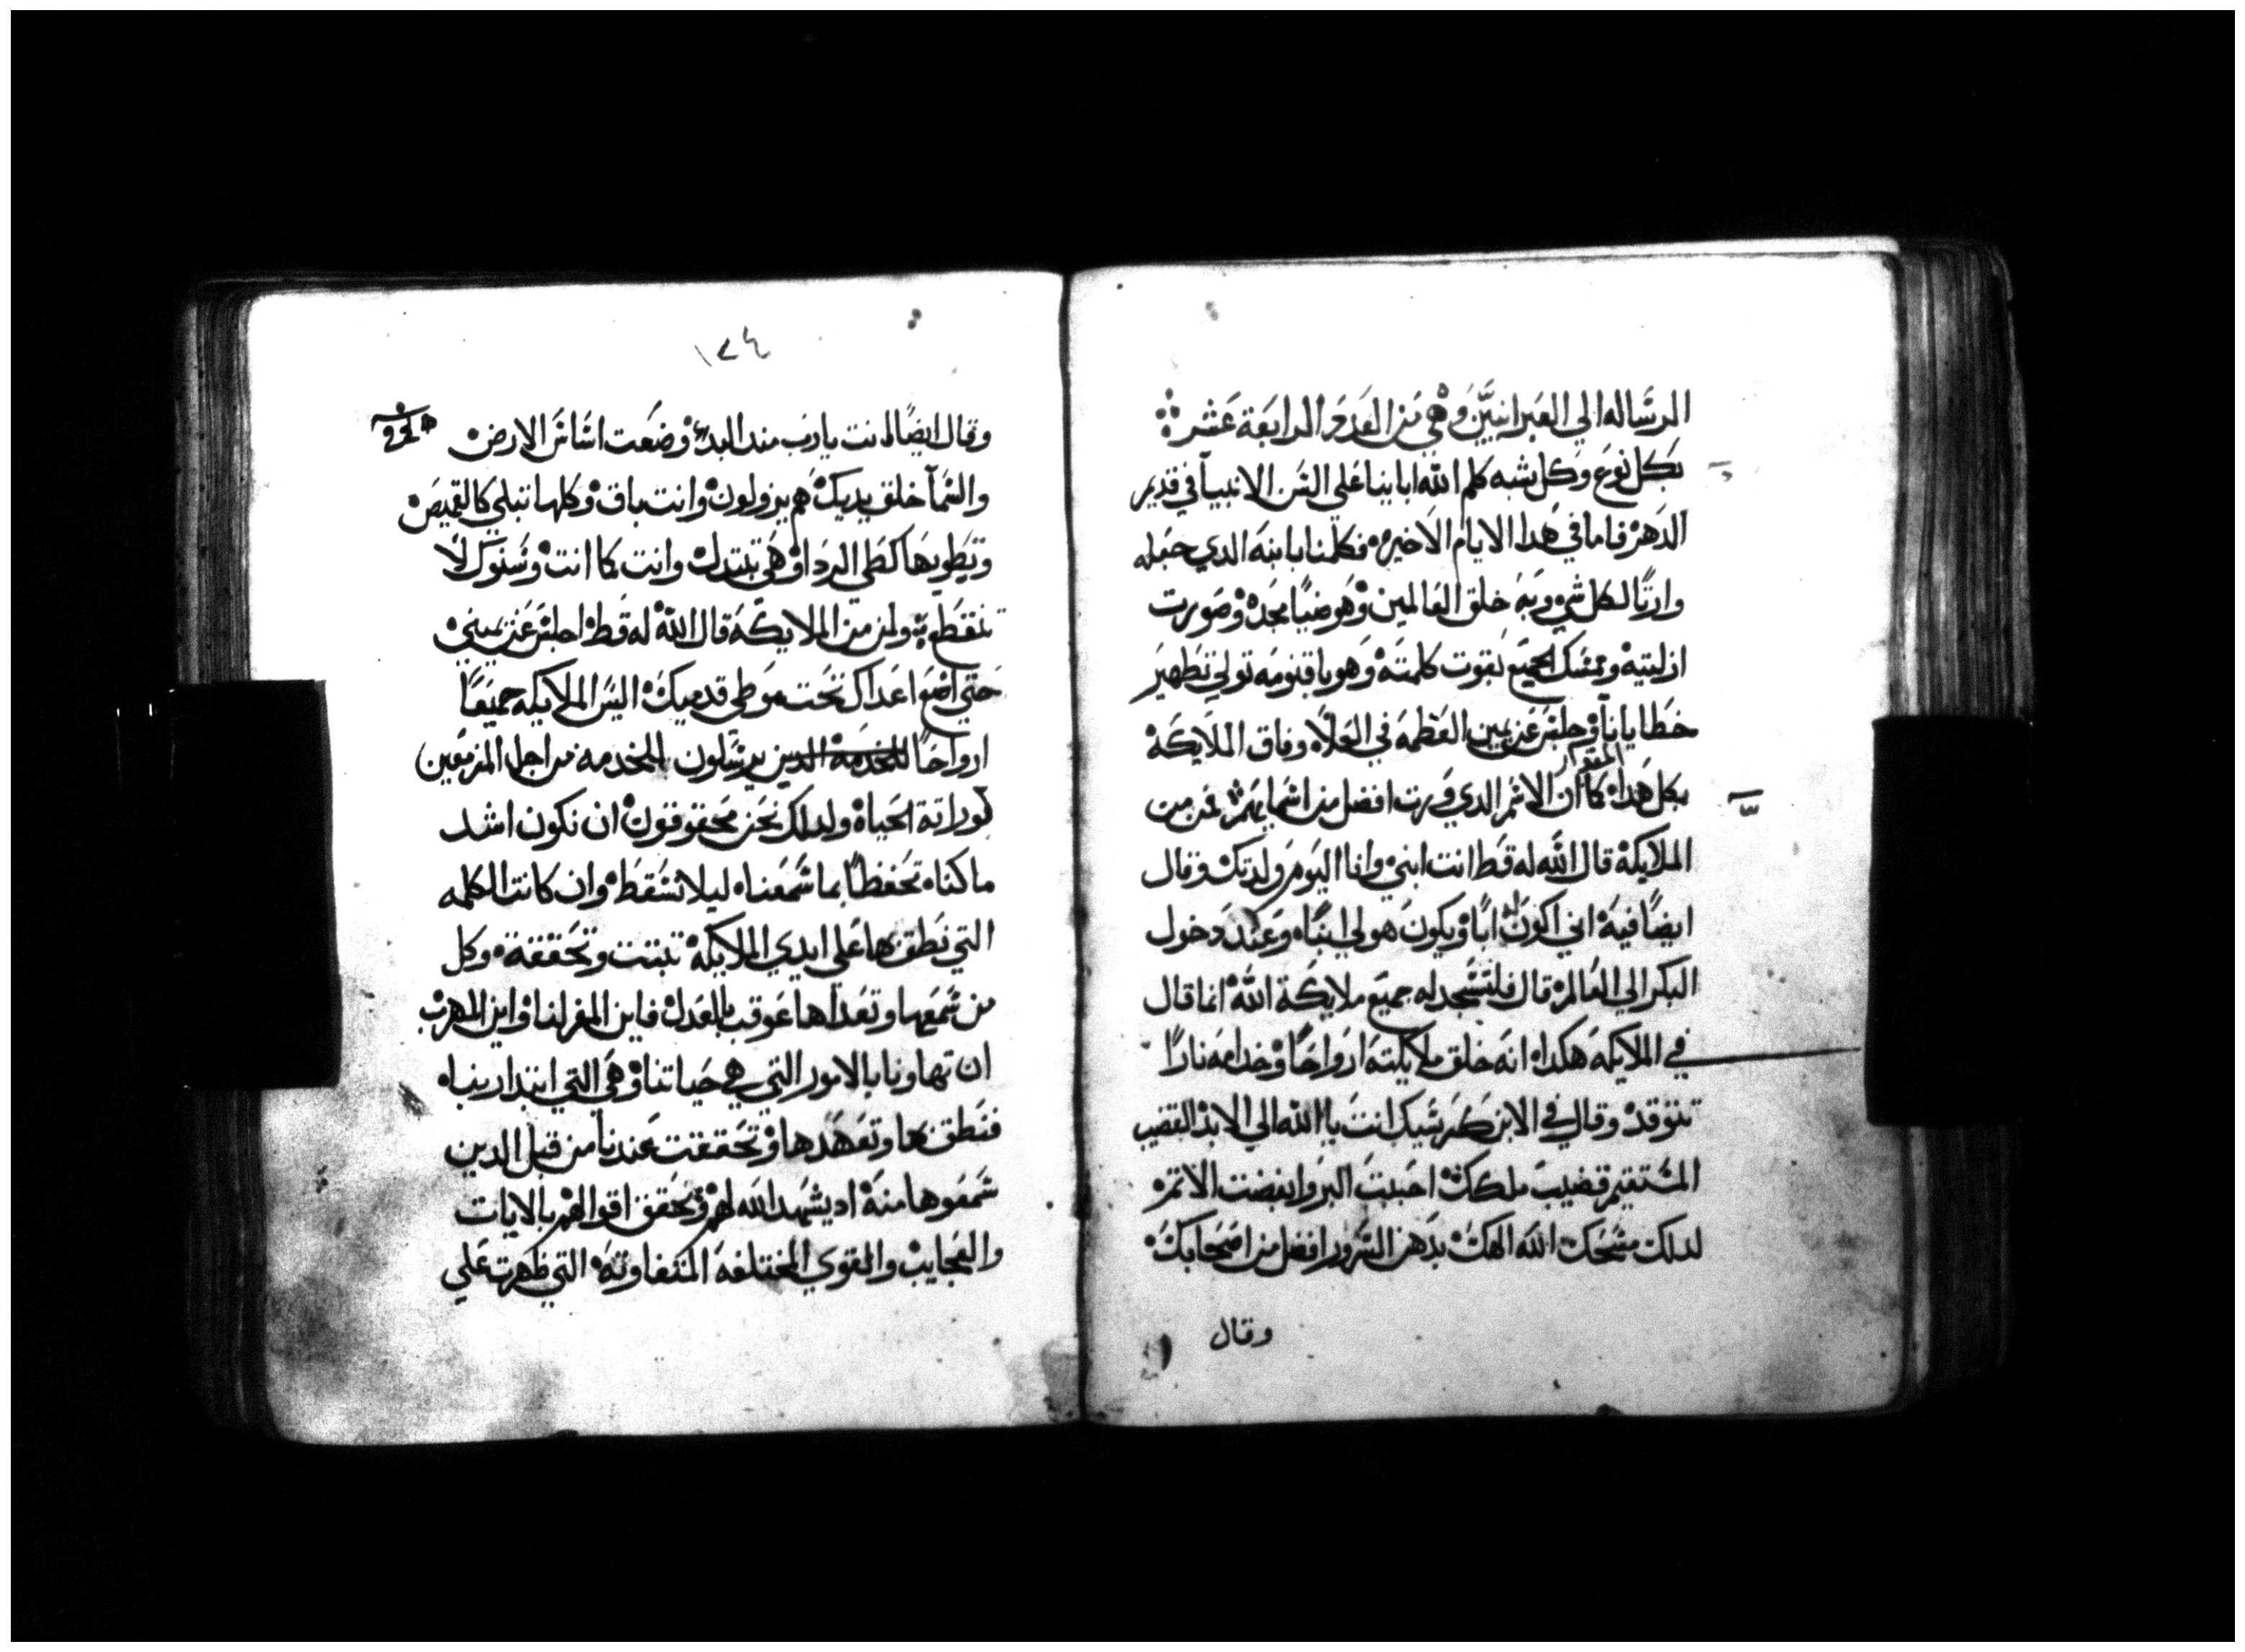 الرساله الي العبرانيين وهي من العدد الرابعة عشر
بكل نوع وكل شبه كلم الله ابابينا علي السن الانبيا في قديم
الدهر فاما في هدا الايام الاخيره فكلمنا بابنه الدي جعله
وارثا لكل شي وبه خلق العالمين وهو ضيا مجده وصورت
ازليته وممسك الجميع بقوت كلمته وهو باقنومه تولي تطهير
خطايانا وجلس عن يمين العظمه في العلاه وفاق الملايكه
بكل هدا المقدار كما ان الاسم الدي ورت افضل من اسمايهم فمن من
الملايكه قال الله له قط انت ابني وانا اليوم ولدتك وقال
ايضا فيه اني اكون له ابا ويكون هو لي ابناه وعند دخول
البكر الي العالم قال فلتسجد له جميع ملايكة الله انما قال
في الملايكه هكداه انه خلق ملايكته ارواحا وخدامه نارا
تتوقد وقال في الابن كرسيك انت يا الله الي الابد القضيب
المستقيم قضيب ملكك احببت البر وابغضت الاتم
لدلك مسحك الله الهك بدهن السرور افضل من اصحابك
وقال
١٧٤
وقال ايضا انت يارب مند البدء وضعت اساس الارض
والسما خلق يديك هم يزولون وانت باق وكلها تبلي كالقميص
وتطويها كطي الردا وهي تتبدل وانت كما انت وسنوك لا
تنقطع ولمن من الملايكة قال الله له قط اجلس عن يميني
حتي اضع اعداك تحت موطي قدميك اليس الملايكه جميعا
ارواحا للخدمة الدين يرسلون للخدمه من اجل المزمعين
لوراتة الحياه ولدلك نحن محقوقون ان نكون اشد
ماكناه تحفظا بما سمعناه ليلا نسقط وان كانت الكلمه
التي نطق بها علي ايدي الملايكة تبتت وتحققة وكل
من سمعها وتعداها عوقب بالعدل فاين المفر لنا واين المهرب
ان تهاونا بالامور التي هي حياتنا وهي التي ابتدا ربناه
فنطق بها وتعهدها وتحققت عندنا من قبل الدين
سمعوها منه اد يشهد الله لهم وتحقق اقوالهم بالايات
والعجايب والقوي المختلفه المتفاوته التي ظهرت علي